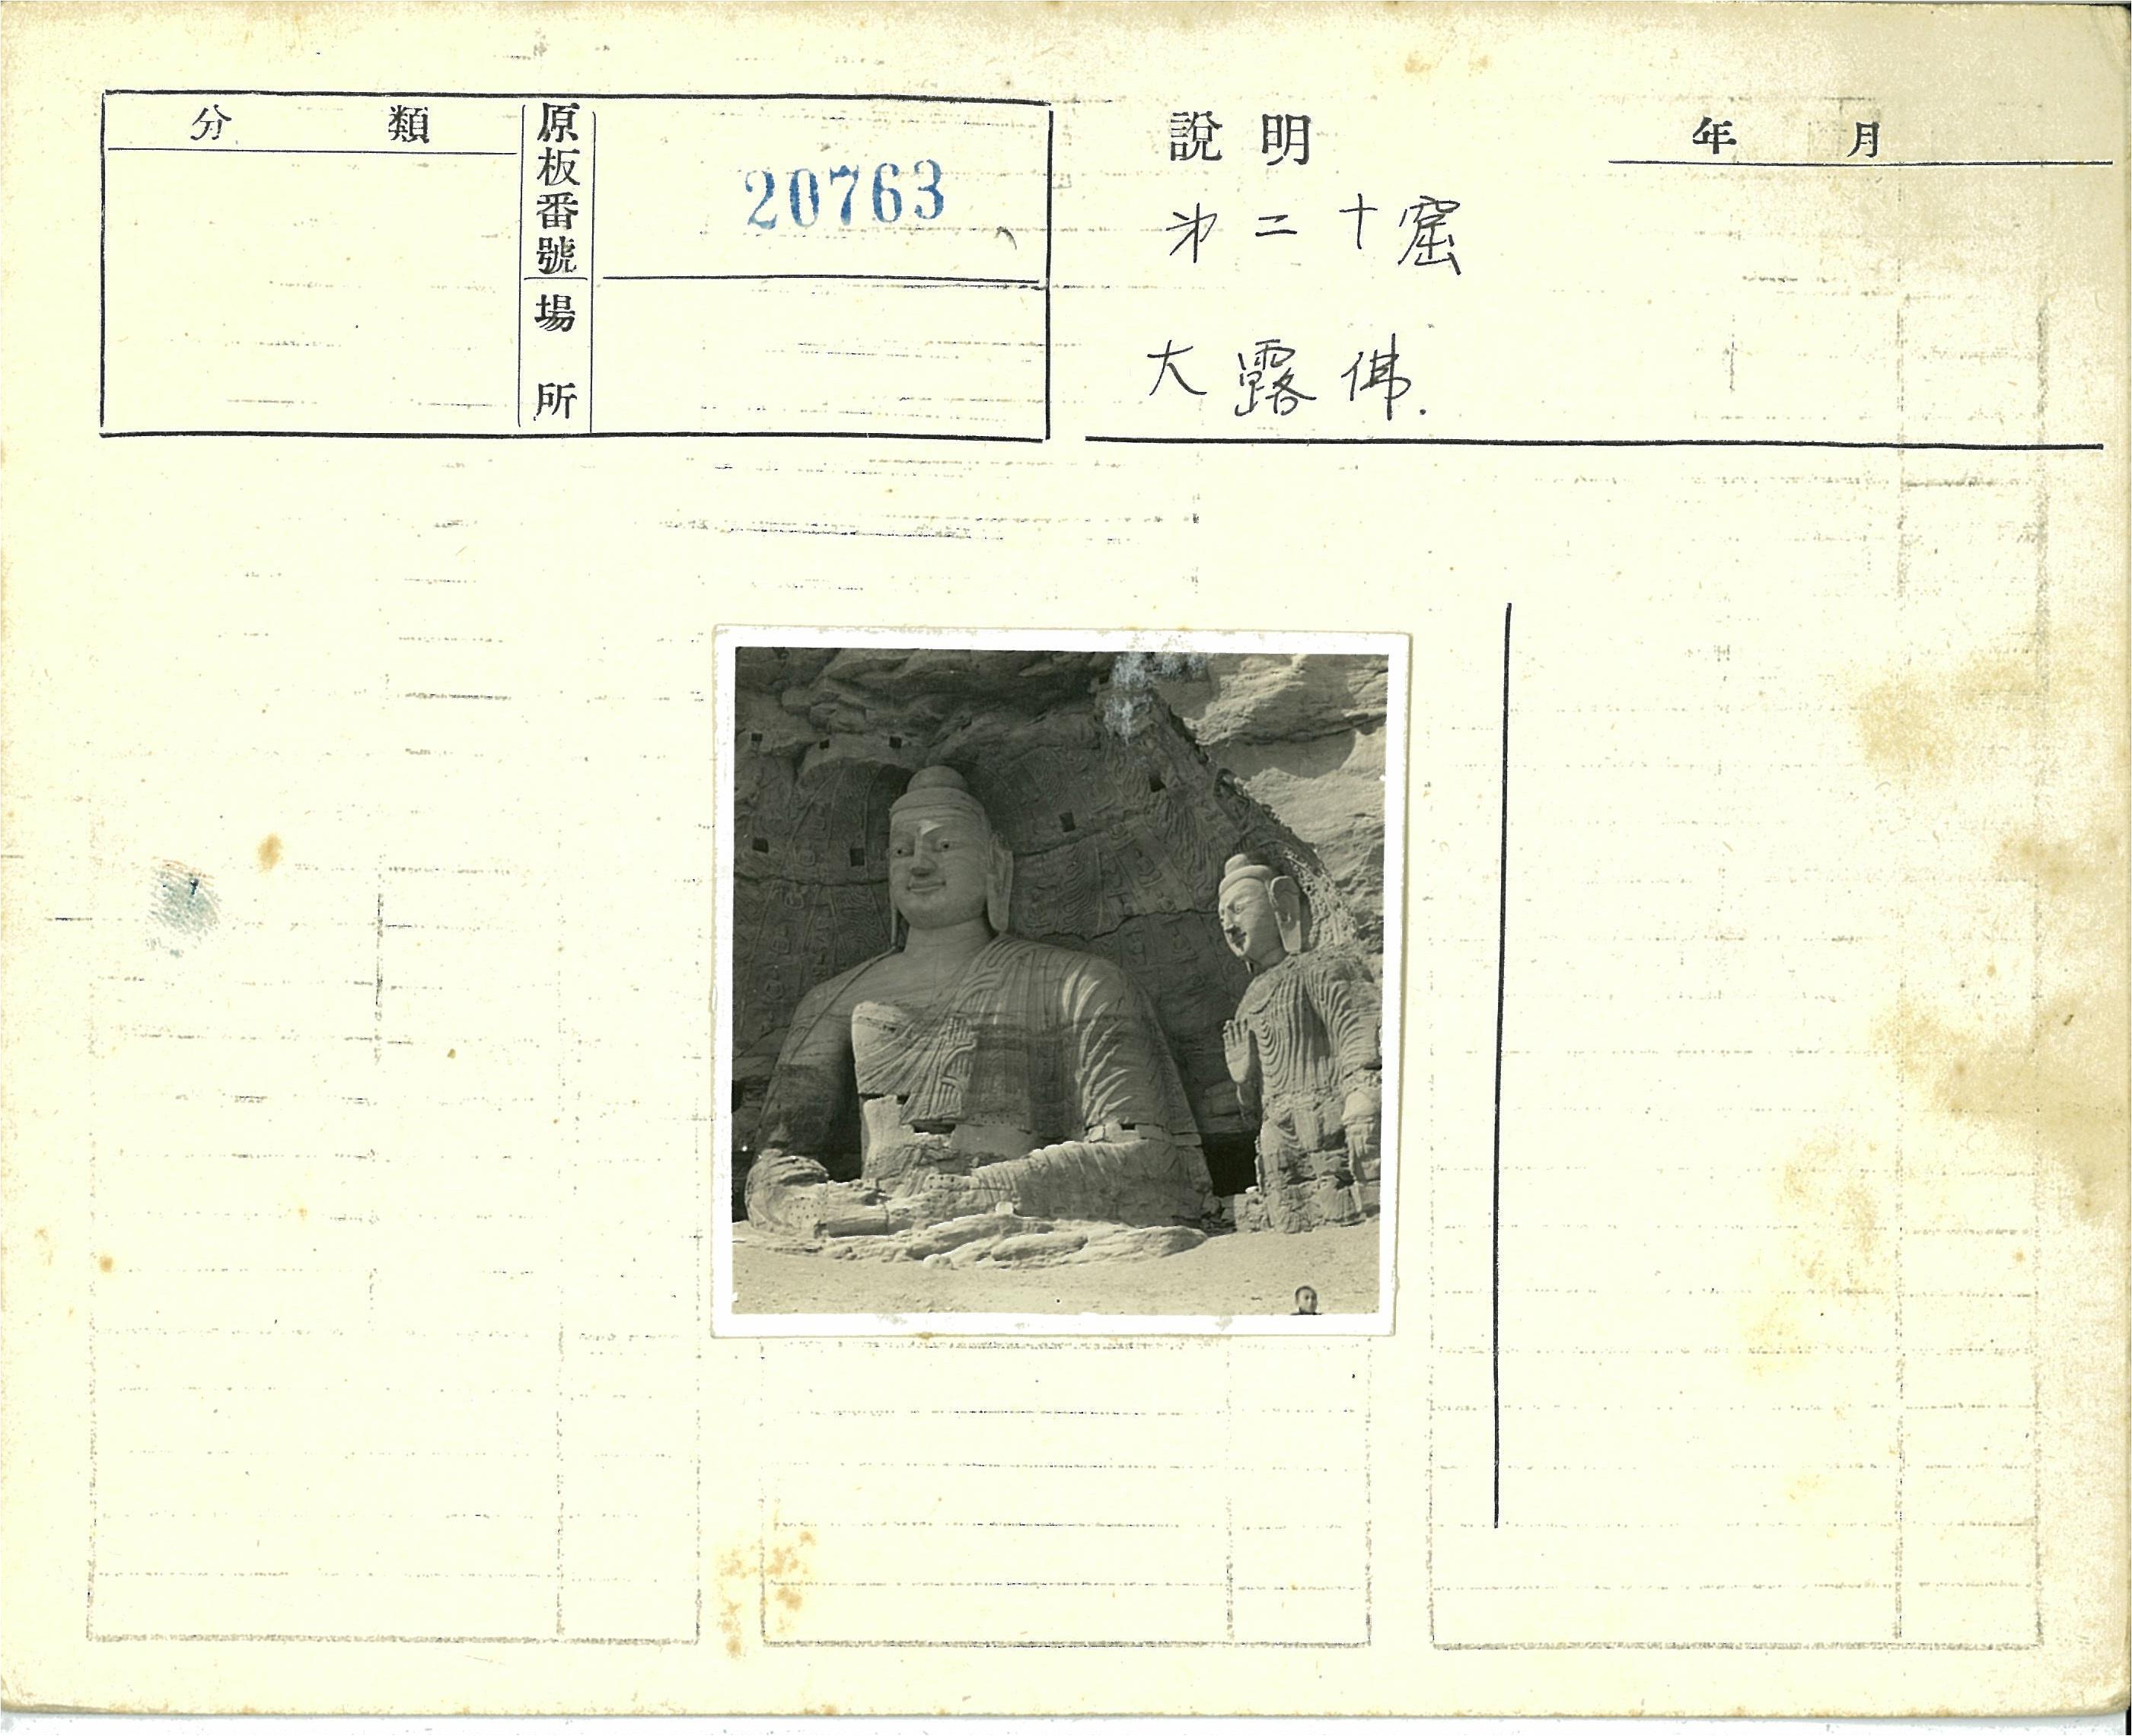 分類
原板番號
20763
場所
説明
年月
第二十窟
大露佛.